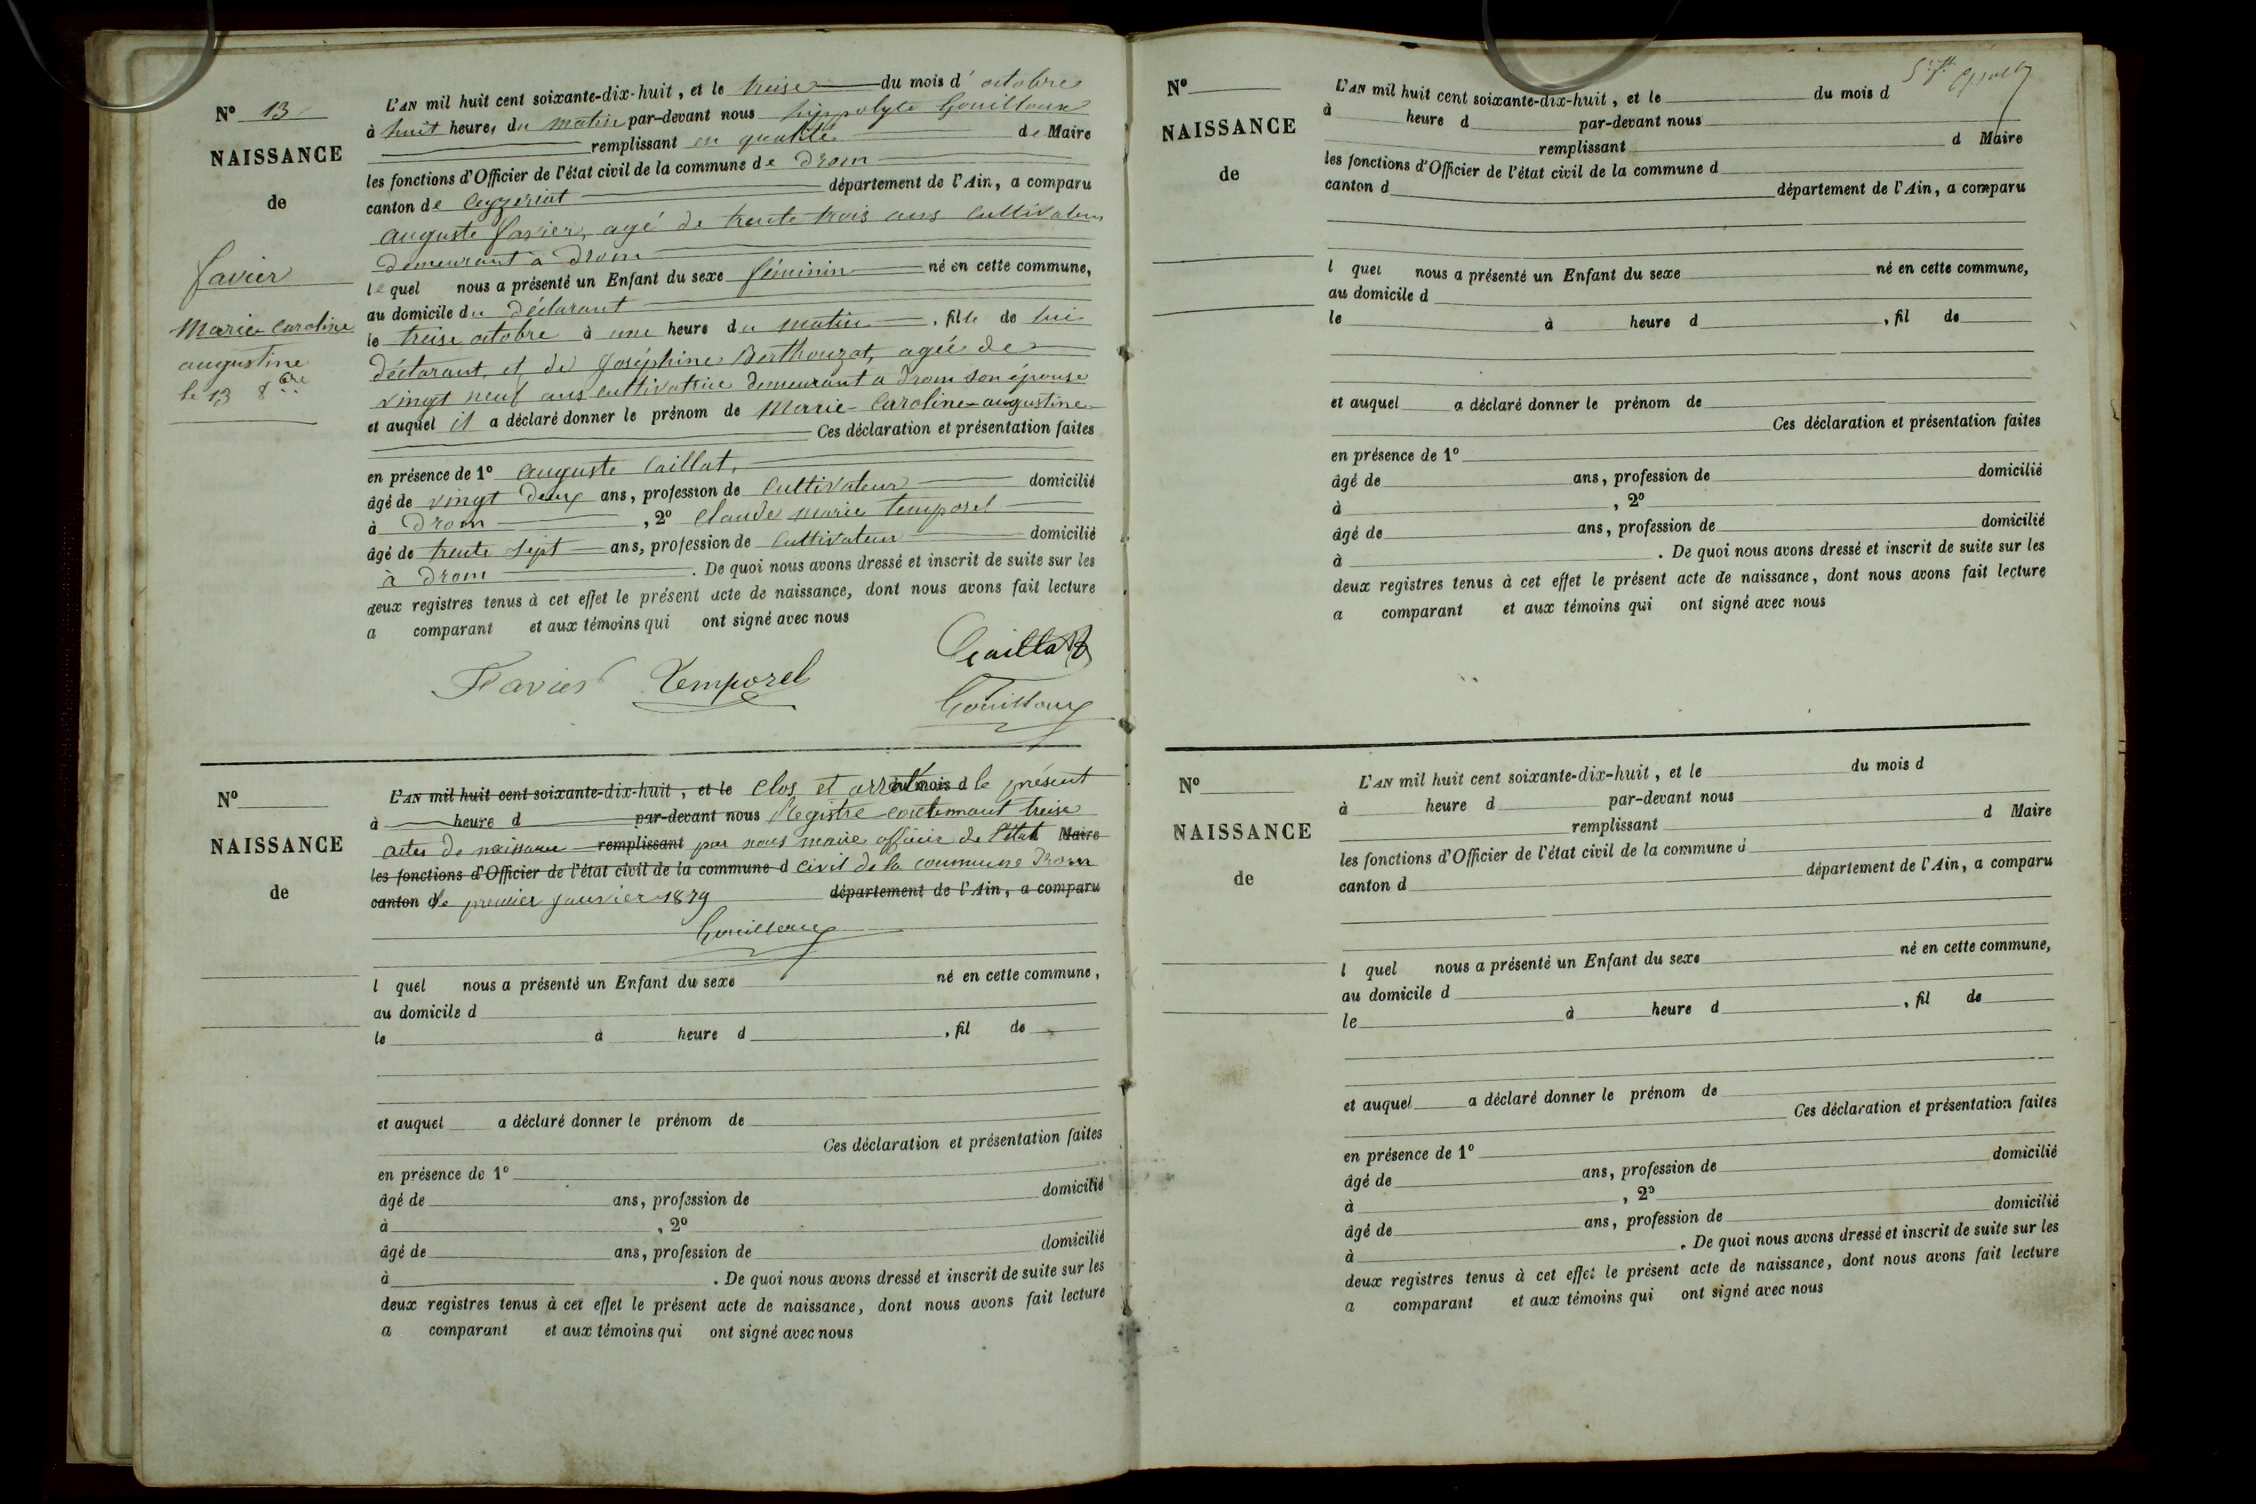 N° 13
NAISSANCE
de
favier
Marie Caroline
augustine
le 13 8bre
L'AN mil huit cent soixante-dix-huit, et le treise du mois d'octobre
à huit heures du matin par-devant nous hippolyte Gouilloux
remplissant en qualité de Maire
les fonctions d'Officier de l'état civil de la commune de Drom
canton de Ceyzeriat département de l'Ain, a comparu
auguste favier, agé de trente trois ans Cultivateur
demeurant à Drom
lequel nous a présenté un Enfant du sexe féminin né en cette commune,
au domicile du Déclarant
le treise octobre à une heure du matin, fille de lui
déclarant, et de Joséphine Berthouzat, agée de
vingt neuf ans cultivatrice demeurant a Drom son épouse
et auquel il a déclaré donner le prénom de Marie-Caroline-augustine
Ces déclaration et présentation faites
en présence de 1° auguste Caillat,
âgé de vingt deux ans, profession de Cultivateur domicilié
à Drom, 2° Claude marie temporel
âgé de trente sept ans, profession de Cultivateur domicilié
à Drom. De quoi nous avons dressé et inscrit de suite sur les
deux registres tenus à cet effet le présent acte de naissance, dont nous avons fait lecture
a comparant et aux témoins qui ont signé avec nous
Favier Temporel Caillat
Gouilloux
N°
NAISSANCE
de
L'AN mil huit cent soixante-dix-huit, et le Clos et arrêté du mois d le présent
à heure d par-devant nous Registre contenant treise
actes de naissance remplissant par nous maire officier de l'état Maire
les fonctions d'Officier de l'état civil de la commune d civil de la commune Drom
canton d le premier janvier 1879 département de l'Ain, a comparu
Gouilloux
l quel nous a présenté un Enfant du sexe né en cette commune,
au domicile d
le à heure d, fil de
et auquel a déclaré donner le prénom de
Ces déclaration et présentation faites
en présence de 1°
âgé de ans, profession de domicilié
à, 2°
âgé de ans, profession de domicilié
à. De quoi nous avons dressé et inscrit de suite sur les
deux registres tenus à cet effet le présent acte de naissance, dont nous avons fait lecture
a comparant et aux témoins qui ont signé avec nous
N°
NAISSANCE
de
L'AN mil huit cent soixante-dix-huit, et le du mois d
à heure d par-devant nous
remplissant d Maire
les fonctions d'Officier de l'état civil de la commune d
canton d département de l'Ain, a comparu
l quel nous a présenté un Enfant du sexe né en cette commune,
au domicile d
le à heure d, fil de
et auquel a déclaré donner le prénom de
Ces déclaration et présentation faites
en présence de 1°
âgé de ans, profession de domicilié
à, 2°
âgé de ans, profession de domicilié
à. De quoi nous avons dressé et inscrit de suite sur les
deux registres tenus à cet effet le présent acte de naissance, dont nous avons fait lecture
a comparant et aux témoins qui ont signé avec nous
N°
NAISSANCE
de
L'AN mil huit cent soixante-dix-huit, et le du mois d
à heure d par-devant nous
remplissant d Maire
les fonctions d'Officier de l'état civil de la commune d
canton d département de l'Ain, a comparu
l quel nous a présenté un Enfant du sexe né en cette commune,
au domicile d
le à heure d, fil de
et auquel a déclaré donner le prénom de
Ces déclaration et présentation faites
en présence de 1°
âgé de ans, profession de domicilié
à, 2°
âgé de ans, profession de domicilié
à. De quoi nous avons dressé et inscrit de suite sur les
deux registres tenus à cet effet le présent acte de naissance, dont nous avons fait lecture
a comparant et aux témoins qui ont signé avec nous